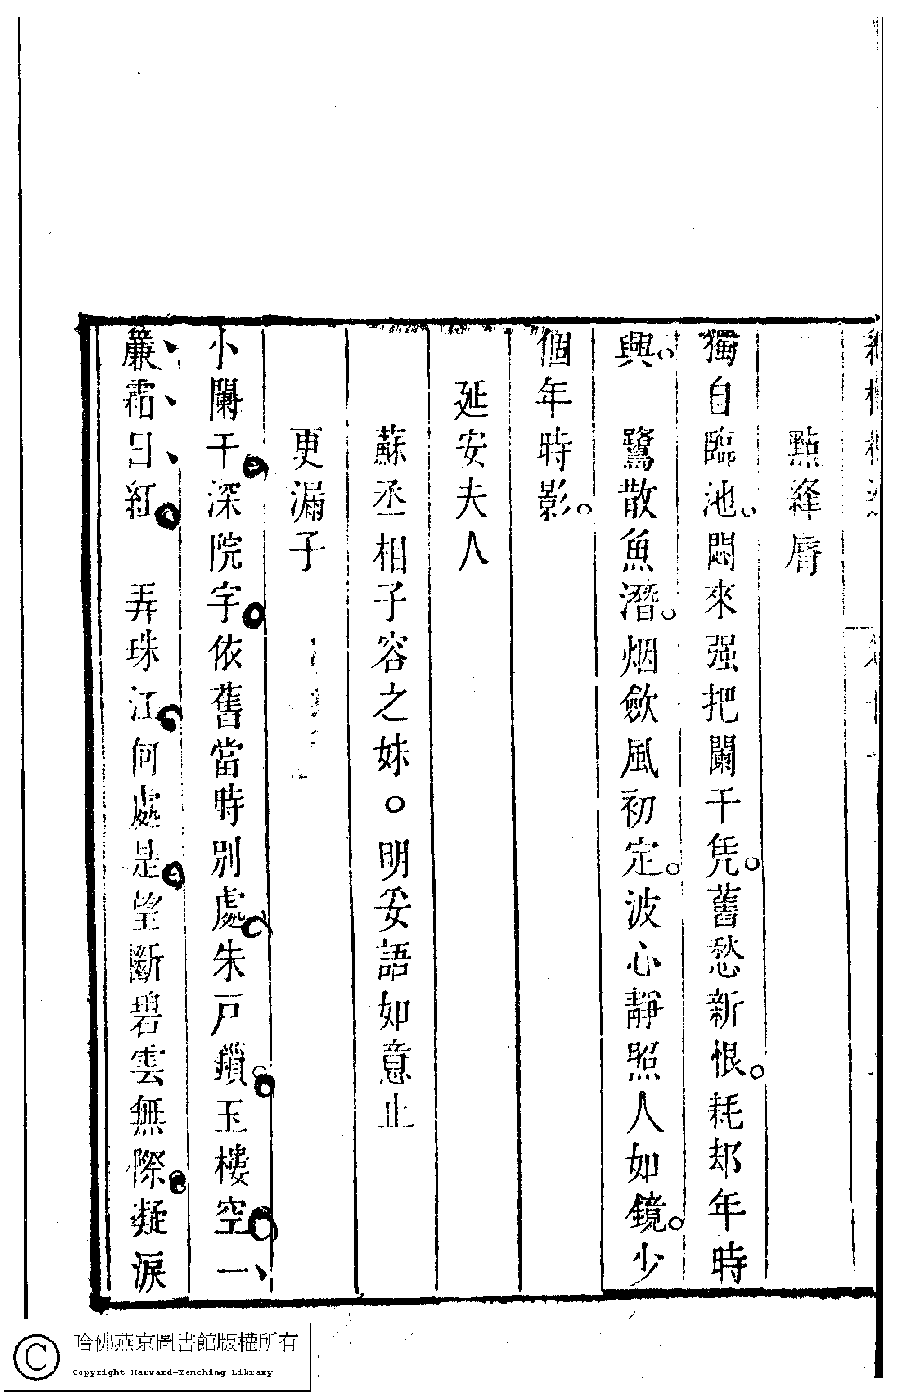 點絳脣
獨自臨池悶來强把闌干凭舊愁新恨耗却年時
興　鷺散魚潛烟歛風初定波心靜照人如鏡少
個年時影
延安夫人
蘇丞相子容之妹○明妥語如意止
更漏子
小闌干深院宇依舊當時別處朱戸鎖玉樓空一
簾霜日紅　弄珠江何處是望斷碧雲無際凝淚
哈佛燕京圖書館版權所有
Copyright Harvard-Yenching Library